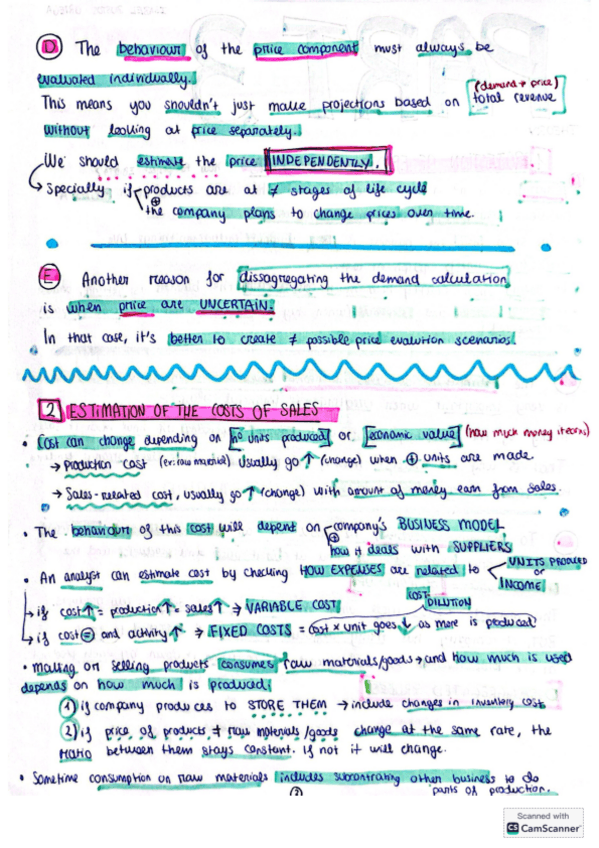 D The behaviour of the price component must always be
evaluated individually.
This means you shouldn't just make projections based on [total revenue (demand + price)]
without looking at price separately.
We should estimate the price INDEPENDENTLY.
Specially if products are at ≠ stages of life cycle
⊕
the company plans to change prices over time.
E Another reason for dissagregating the demand calculation
is when price are UNCERTAIN.
In that case, it's better to create ≠ possible price evalution scenarios.
2 ESTIMATION OF THE COSTS OF SALES
• Cost can change depending on [nº units produced] or [economic value] (how much money it earns)
→ Production cost (ex: raw material) usually go ↑ (change) when ⊕ units are made
→ Sales-related cost, usually go ↑ (change) with amount of money earn from sales.
• The behaviour of this cost will depend on company's BUSINESS MODEL
⊕
how it deals with SUPPLIERS
• An analyst can estimate cost by checking HOW EXPENSES are related to UNITS PRODUCED
or
INCOME
COST DILUTION
→ if cost ↑ = production ↑ = sales ↑ → VARIABLE COST
→ if cost = and activity ↑ → FIXED COSTS = cost x unit goes ↓ as more is produced
• Making or selling products consumes raw materials/goods → and how much is used
depends on how much is produced;
1) if company produces to STORE THEM → include changes in inventory cost
2) if price of products ≠ raw materials/goods change at the same rate, the
ratio between them stays constant. if not it will change.
• Sometime consumption on raw materials includes subcontrating other business to do
parts of production.
Scanned with
CS CamScanner